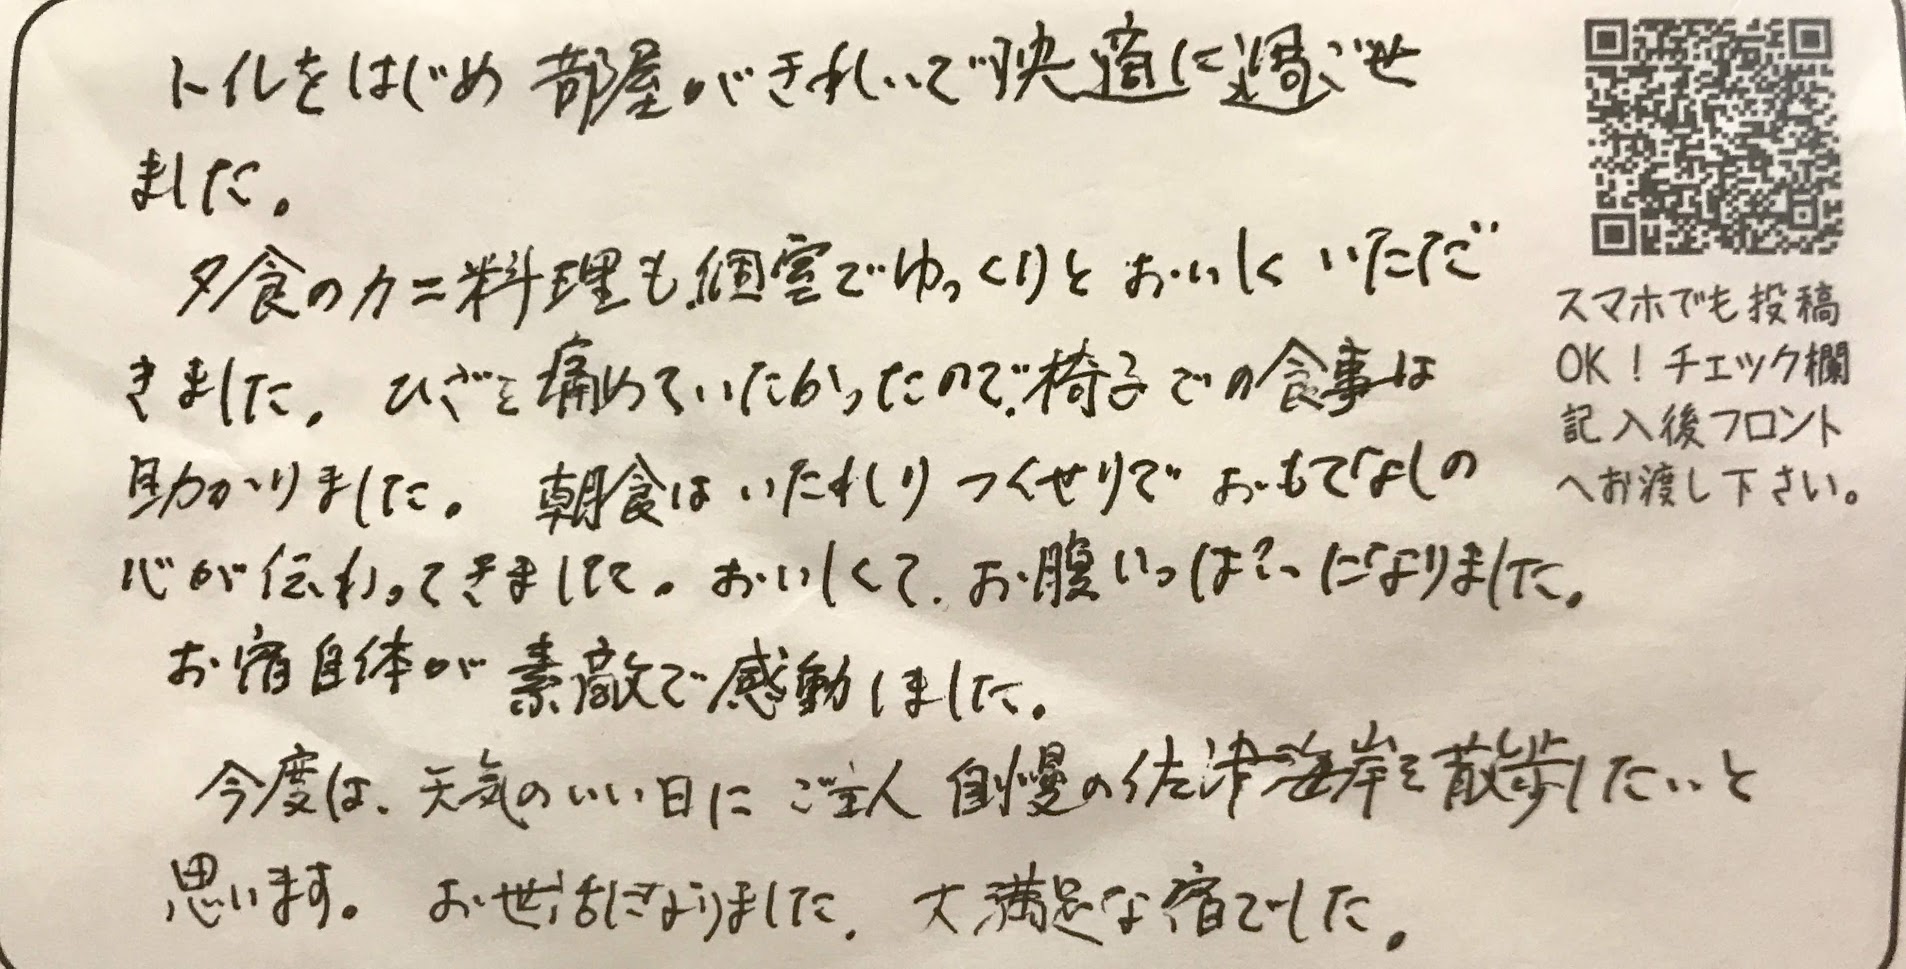 トイレをはじめ部屋がきれいで快適に過ごせ
ました。
夕食のカニ料理も個室でゆっくりとおいしくいただ
きました。ひざを痛めていたかったので、椅子での食事は
助かりました。朝食はいたれりつくせりでおもてなしの
心が伝わってきました。おいしくて、お腹いっぱいになりました。
お宿自体が素敵で感動しました。
今度は、天気のいい日にご主人自慢の佐津海岸を散歩したいと
思います。お世話になりました。大満足な宿でした。
スマホでも投稿
OK！チェック欄
記入後フロント
へお渡し下さい。